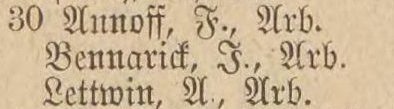 30 Annoff, F., Arb.
Bennarick, J., Arb.
Lettwin, A., Arb.